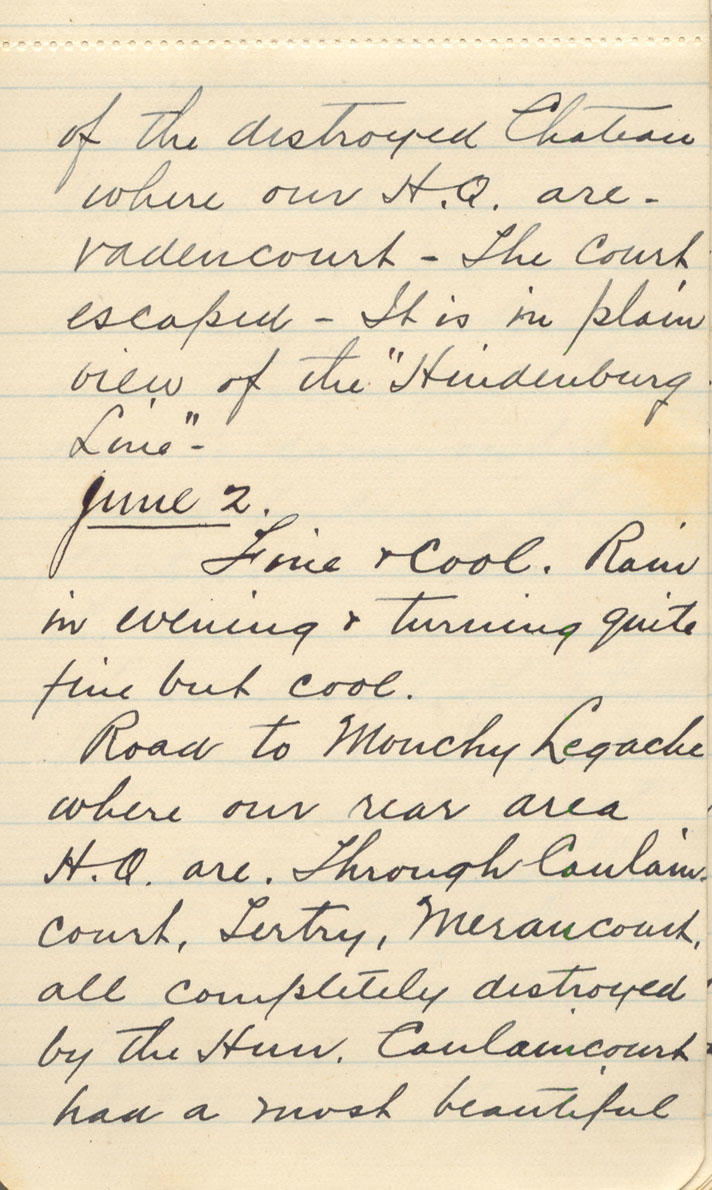 of the destroyed Chateau
where our H.Q. are -
Vadencourt - The Court
escaped - It is in plain
view of the "Hindenburg
Line" -
June 2.
Fine & cool. Rain
in evening & turning quite
fine but cool.
Road to Monchy Legache
where our rear area
H.Q. are. Through Caulain-
court, Tertry, Meraucourt,
all completely destroyed
by the Hun. Caulaincourt
had a most beautiful